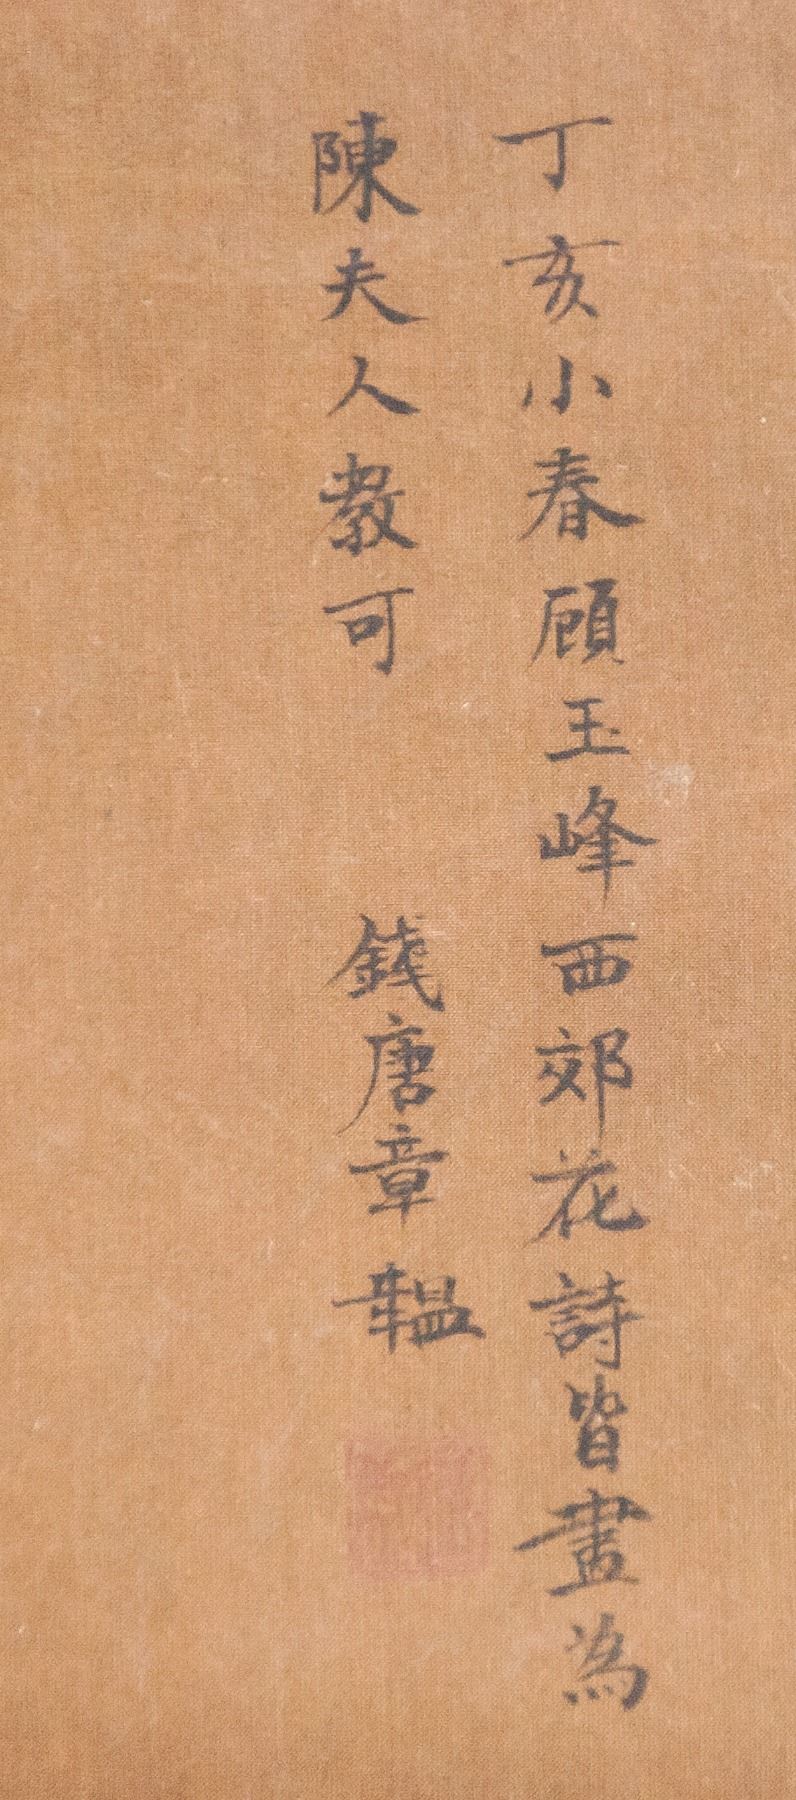 丁亥小春顧玉峰西郊花詩皆畫為
陳夫人教可 錢唐章韞